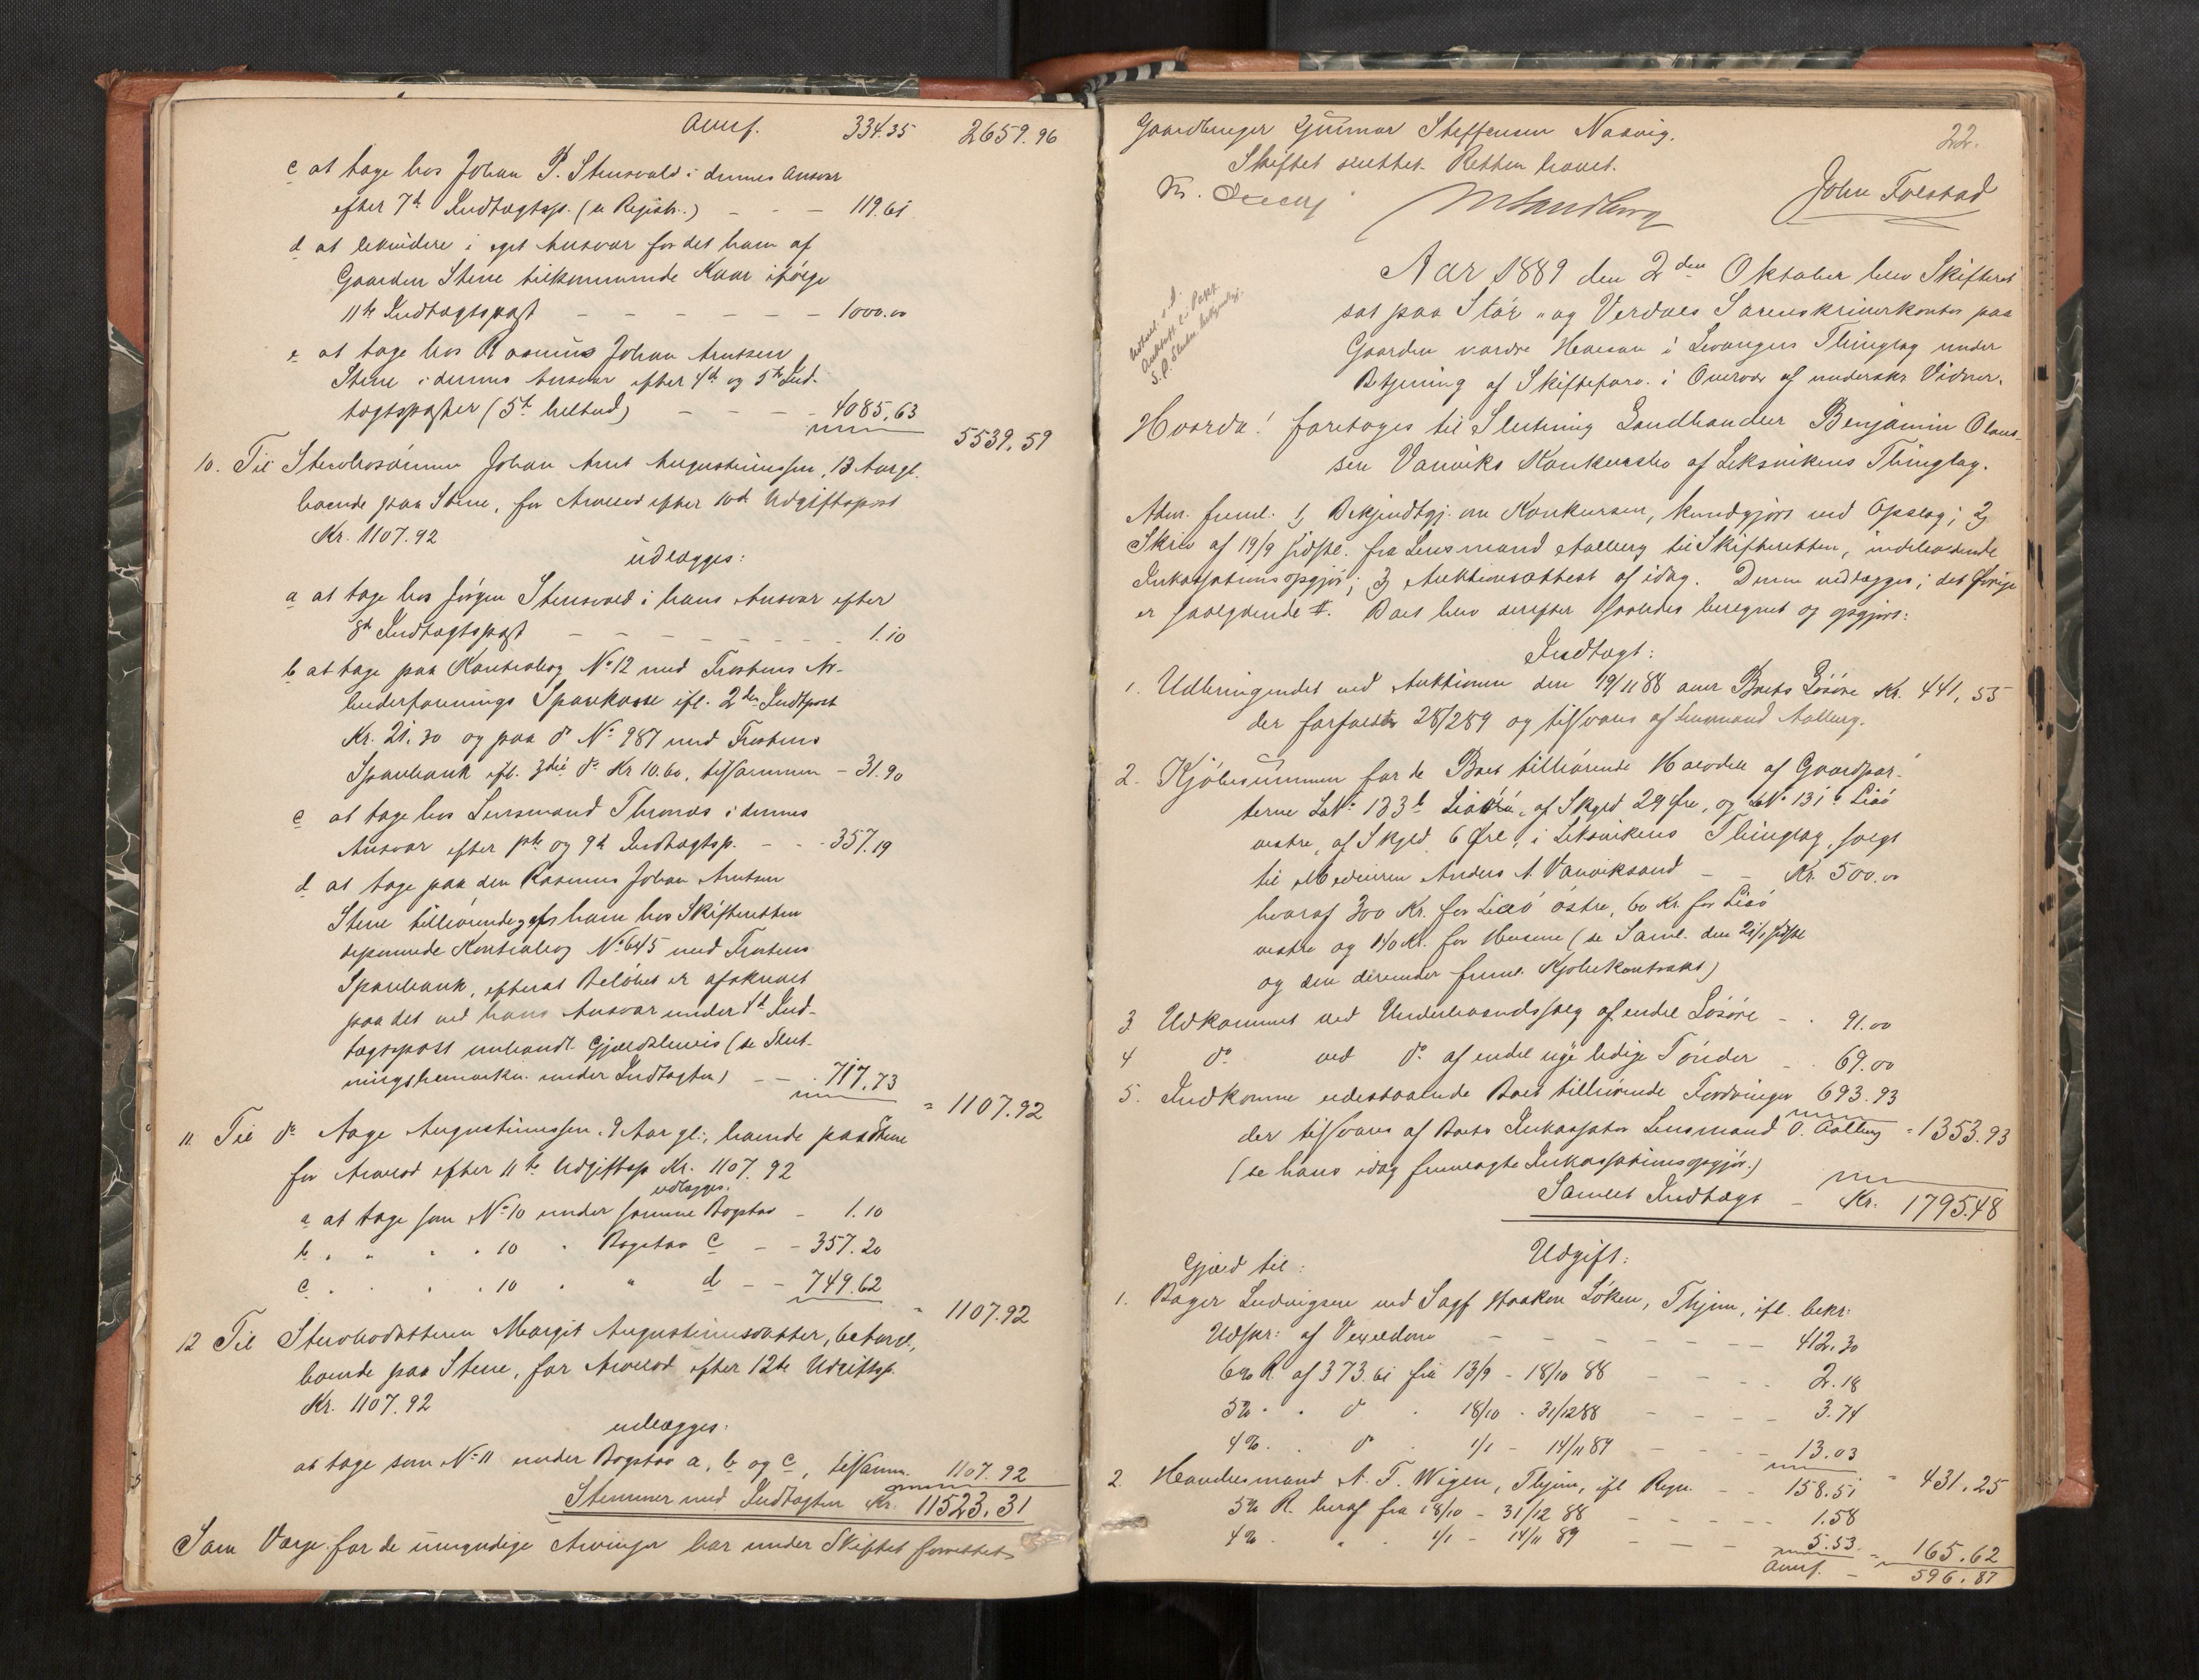 Anmf. 334.35 2659.96
c at tage hos Johan P. Stensvald i dennes Ansvar
efter 7d Indtægtsp. (se Registr.) - - - 119.61
d at likvidere i eget Ansvar for det ham af
Gaarden Stene tilkommende Kaar ifølge
11te Indtægtspost - - - - - - 1000.00
e at tage hos Rasmus Johan Arntsen
Stene i dennes Ansvar efter 4d og 5te Ind-
tægtsposter (5te heltud) - - - - 4085.63
5539.59
10. Til Stervbosønnen Johan Arnt Augustinussen, 13 Aar gl.
boende paa Stene, for Arvelod efter 10d Udgiftspost
Kr. 1107.92
udlægges:
a at tage hos Jørgen Stensvald i hans Ansvar efter
8d Indtægtspost - - - - - - - 1.10
b at tage paa Kontrabog No 12 med Frostens Ar-
beiderforenings Sparekasse ifl. 2den Indtpost
Kr. 21.30 og paa do No 987 med Frostens
Sparebank ifl. 3die do Kr 10.60, tilsammen - 31.90
c at tage hos Lensmand Thomas i dennes
Ansvar efter 1ste og 9d Indtægtsp. - - - 357.19
d at tage paa den Rasmus Johan Arntsen
Stene tilhørende af ham hos Skifteretten
deponerede Kontrabog No 645 med Frostens
Sparebank, efterat Beløbet er afskrevet
paa det ved hans Ansvar under 4d Ind-
tægtspost omhandl. Gjældsbevis (se Slut-
ningsbemærkn. under Indtægten) - - . 717.73
= 1107.92
11. Til do Aage Augustinussen, 9 Aar gl., boende paa Stene
for Arvelod efter 11te Udgiftsp. Kr. 1107.92
udlægges:
a at tage som No 10 under samme Bogstav - 1.10
b " " " " 10 " Bogstav c - - 357.20
c " " " " 10 " " d - - 749.62
= 1107.92
12 Til Stervbodatteren Margit Augustinusdatter, 6 Aar gl.,
boende paa Stene, for Arvelod efter 12te Udgiftsp.
Kr. 1107.92
udlægges:
at tage som No 11 under Bogstav a, b og c, tilsamm. 1107.92
Stemmer med Indtægten Kr. 11523.31
Som Værge for de umyndige Arvinger har under Skiftet forrettet
Gaardbruger Gunnar Steffensen Naavig. 22.
Skiftet sluttet. Retten hævet.
M Sandberg John Folstad
Aar 1889 den 2den Oktober blev Skifteret
sat paa Stør- og Verdals Sorenskriverkontor paa
Gaarden nordre Heaean i Levangers Thinglag under
Betjening af Skifteforv. i Overvær af underskr Vidner.
Hvorda! foretoges til Slutning Landhandler Benjamin Olaus-
sen Vanviks Konkursbo af Leksvikens Thinglag.
Adm. freml. 1) Bekjendtgj. om Konkursen, kundgjort ved Opslag; 2)
Skriv af 19/9 sidstl. fra Lensmand Aalberg til Skifteretten, indeholdende
Inkassationsopgjør; 3) Auktionsattest af idag. Denne vedlægges; det Øvrige
er saalydende #. Boet blev derefter saaledes beregnet og opgjort:
Indtægt:
1. Udbringendet ved Auktionen den 19/11 88 over Boets Løsøre Kr. 441,55
der forfaldt 28/2 89 og tilsvares af Lensmand Aalberg.
2. Kjøbesummen for de Boet tilhørende Halvdele af Gaardpar-
terne LNo 133b Liaø østre, af Skyld 29 Øre, og LNo 131b Liaø
vestre, af Skyld 6 Øre, i Leksvikens Thinglag, solgt
til Medeieren Anders A. Vanviksand - - Kr. 500.00
hvoraf 300 Kr. for Liaø østre, 60 Kr. for Liaø
vestre og 140 Kr. for Husene (se Saml. den 21/1 sidstl
og den derunder freml. Kjøbekontrakt)
3 Udkommet ved Underhaandssalg af endel Løsøre - . 91.00
4 do ved do af endel nye ledige Tønder - . 69.00
5. Indkomne udestaaende Boet tilhørende Fordringer 693.93
der tilsvares af Boets Inkassator Lensmand O. Aalberg = 1353.93
(se hans idag fremlagte Inkassationsopgjør.)
Samlet Indtægt - Kr. 1795.48
Udgift:
Gjæld til:
1. Bager Ludvigsen ved Sagf Haakon Løken, Thjem, ifl. bekr:
Udskr: af Vexeldom - - - - - - 412.30
6% R. af 373.61 fra 13/9 - 18/10 88 - - - 2.18
5% " " do " 18/10 - 31/12 88 - - - - 3.74
4% " " do " 1/1 - 14/11 89 - - - 13.03
= 431.25
2. Handelsmand A. T. Wigen, Thjem, ifl Regn. - - 158.51
5% R. heraf fra 18/10 - 31/12 88 - - - - - 1.58
4% " " " 1/1 - 14/11 89 - - - 5.53 = 165.62
Anmf. - 596.87